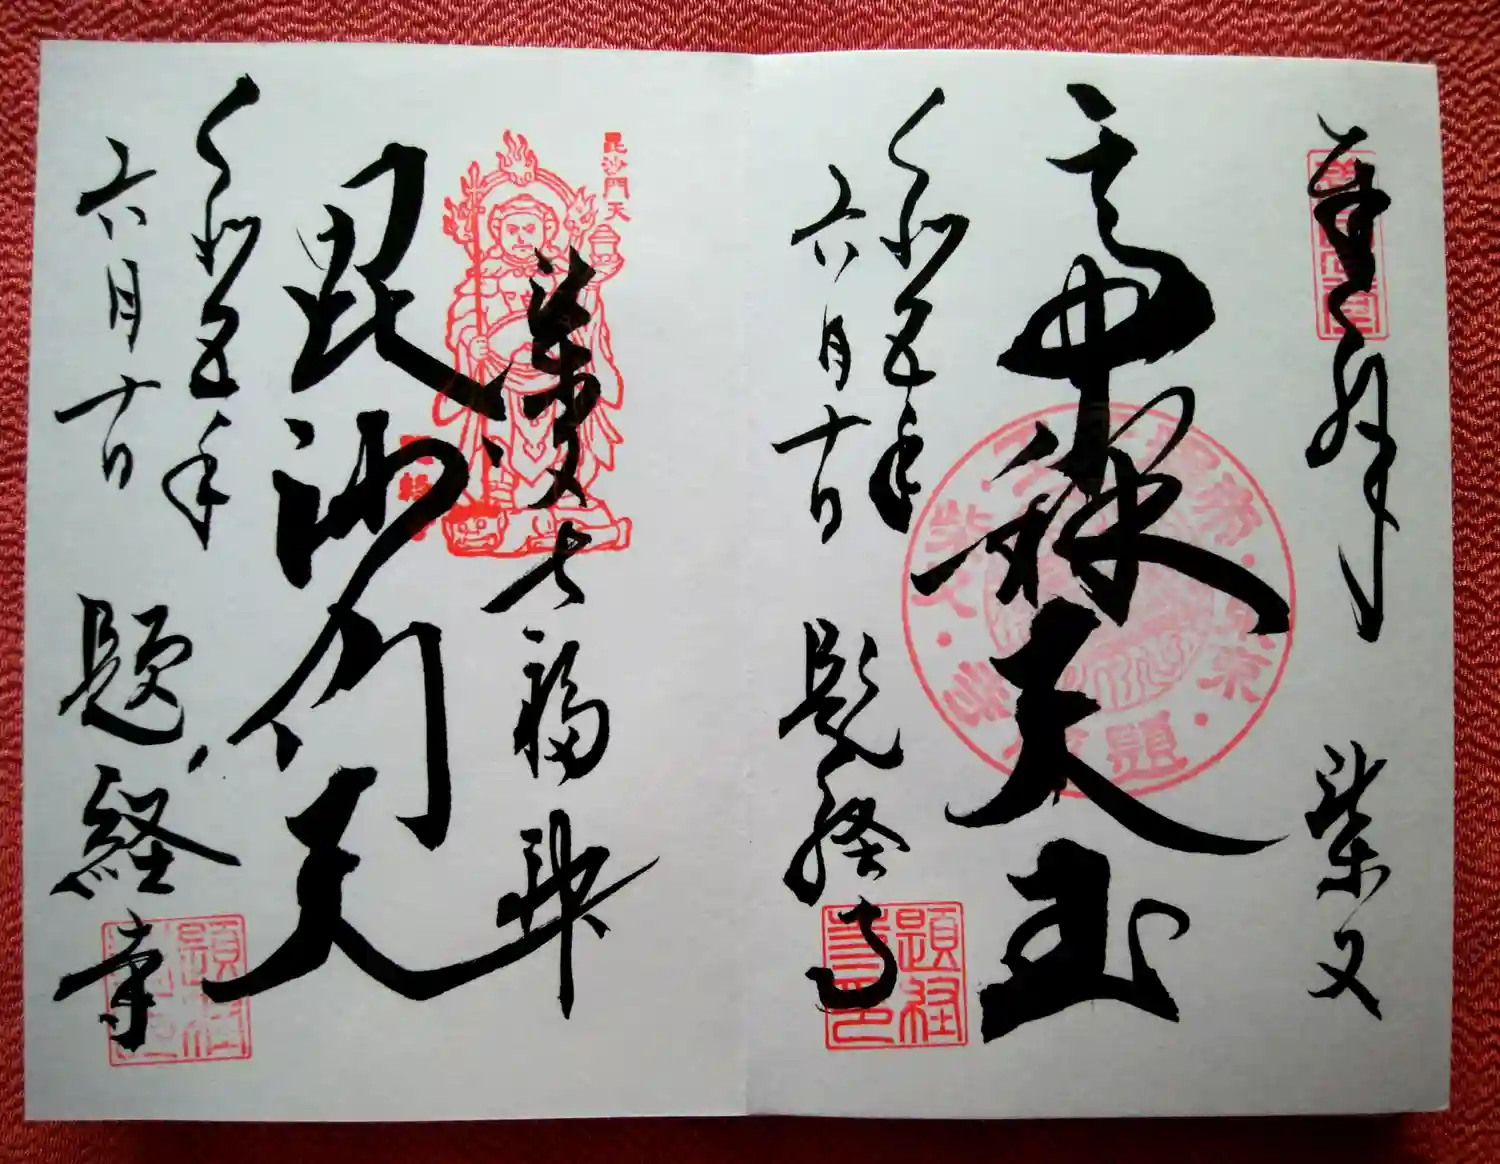 奉拝 柴又
帝釈天王
令和五年
六月十日
題経寺
題経寺
毘沙門天
柴又七福神
毘沙門天
令和五年
六月十日
題経寺